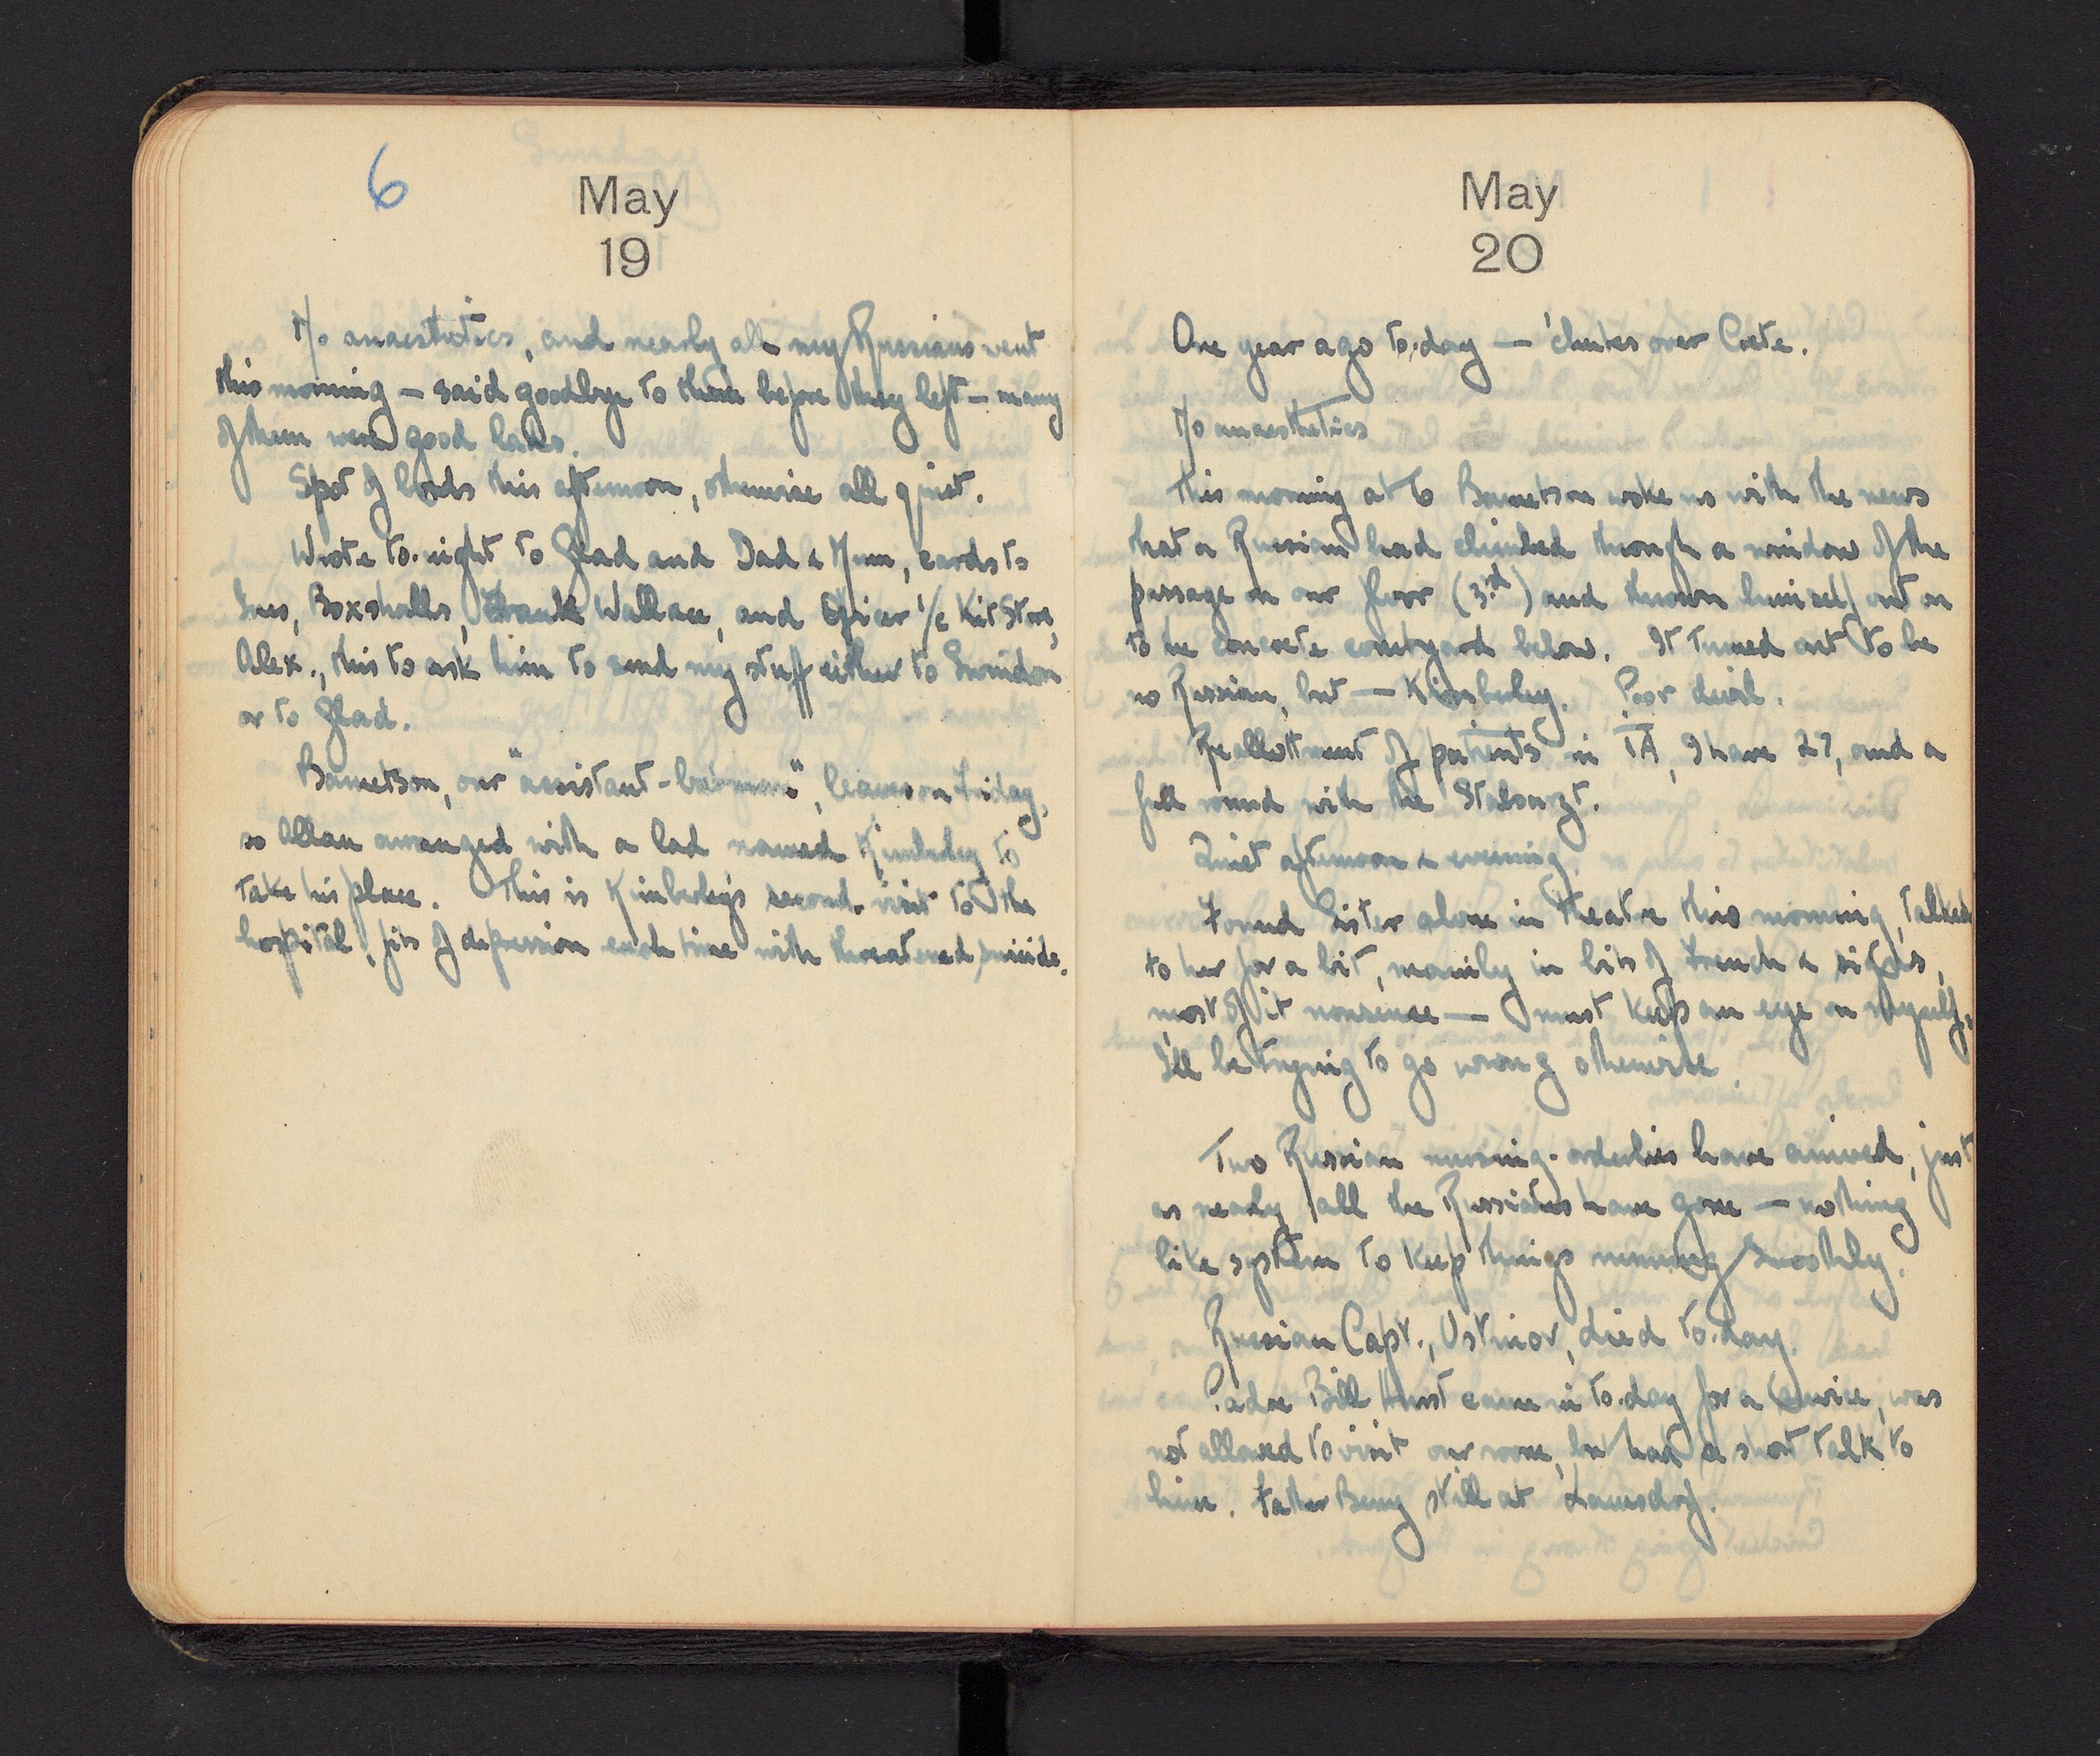 6
May
19
No anaesthetics, and nearly all my Russians went
this morning – said goodbye to them before they left – many
of them were good lads.
Spot of cards this afternoon, otherwise all quiet.
Wrote to-night to Glad and Dad & Mum, cards to
Boxshalls, Frank Wallace, and Officer i/c Kit Store,
Alex., this to ask him to send my stuff either to Swindon
or to Glad.
Bametson, our "assistant-batman", leaves on Friday,
so Allan arranged with a lad named Kimberley to
take his place. This is Kimberley's second visit to the
hospital, fits of depression each time with threatened suicide.
May
20
One year ago to-day — 'chutes over Crete.
No anaesthetics
This morning at 6 Bametson woke us with the news
that a Russian had climbed through a window of the
passage on our floor (3rd) and thrown himself out on
to the concrete courtyard below. It turned out to be
no Russian, but — Kimberley. Poor devil.
Reallottment of patients in IA, I have 27, and a
full round with the Stabsarzt.
Quiet afternoon & evening.
Found Sister alone in theatre this morning, talked
to her for a bit, mainly in bits of French & signs,
most of it nonsense — must keep an eye on myself,
I'll be trying to go wrong otherwise.
Two Russian nursing-orderlies have arrived, just
as nearly all the Russians have gone — nothing
like system to keep things running smoothly.
Russian Capt., Ustinov, died to-day.
Padre Bill Hurst came in to-day for a service, was
not allowed to visit our room, but had a short talk to
him. Father Berry still at Lamsdorf.